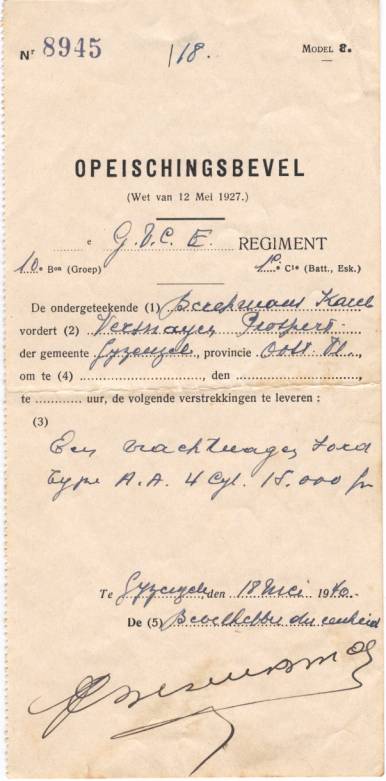 Nr 8945 118. MODEL 8.
OPEISCHINGSBEVEL
(Wet van 12 Mei 1927.)
e G.V.C. E REGIMENT
10e Bon (Groep) 1e Cie (Batt., Esk.)
De ondergeteekende (1) Beeckmans Karel
vordert (2) Prospert
der gemeente Gyzenzele, provincie Oost Vl
om te (4) , den
te uur, de volgende verstrekkingen te leveren :
(3)
Een vrachtwagen Ford
type A.A. 4 Cyl. 15.000 fr
Te Gyzenzele, den 18 Mei 1940.
De (5) Bevelhebber der eenheid